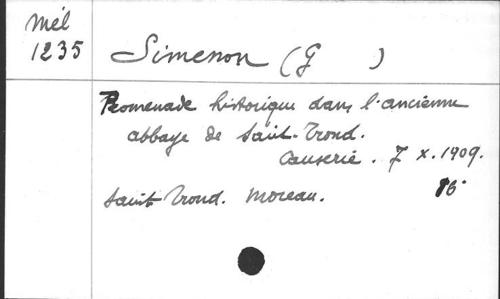 Mél
1235
Simenon (G )
Promenade historique dans l'ancienne
abbaye de Saint-Trond.
Causerie. 7 x. 1909.
Saint-Trond. Moreau. 16°